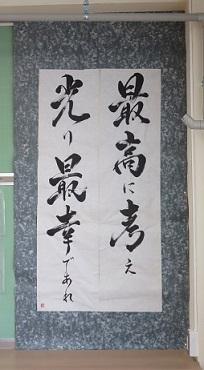 最高に考え
光り最幸であれ